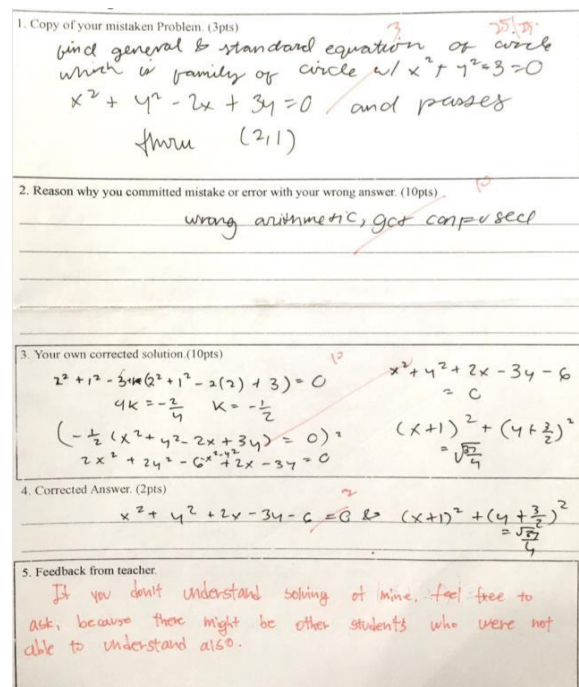 1. Copy of your mistaken Problem. (3pts)
3 25/25
find general & standard equation of circle
which is family of circle w/ x² + y² - 3 = 0
x² + y² - 2x + 3y = 0 and passes
thru (2,1)
2. Reason why you committed mistake or error with your wrong answer. (10pts)
10
wrong arithmetic, got confused
3. Your own corrected solution.(10pts)
10
2² + 1² - 3 + k(2² + 1² - 2(2) + 3) = 0
4k = -2/4 k = -1/2
(-1/2 (x² + y² - 2x + 3y) = 0)²
2x² + 2y² - 6 -x² -y² + 2x - 3y = 0
x² + y² + 2x - 3y - 6
= 0
(x+1)² + (y + 3/2)²
= √37/4
4. Corrected Answer. (2pts)
2
x² + y² + 2x - 3y - 6 = 0 & (x+1)² + (y + 3/2)²
= √37/4
5. Feedback from teacher.
If you don't understand solving of mine, feel free to
ask, because there might be other students who were not
able to understand also.